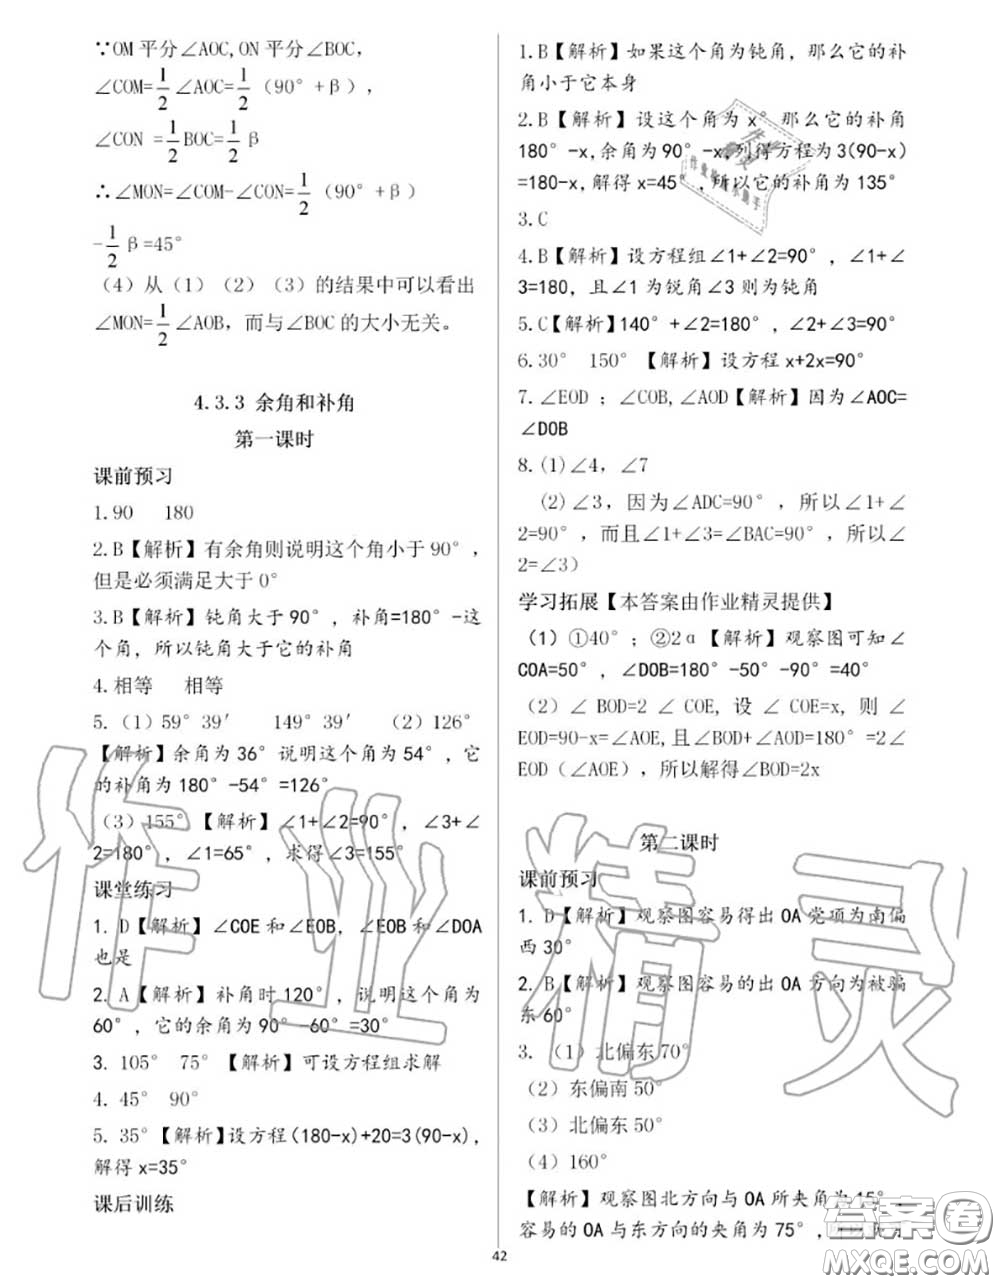 ∵OM 平分∠AOC,ON 平分∠BOC,
∠COM=1/2∠AOC=1/2（90°+β），
∠CON =1/2BOC=1/2β
∴∠MON=∠COM-∠CON=1/2（90°+β）
-1/2β=45°
（4）从（1）（2）（3）的结果中可以看出
∠MON=1/2∠AOB，而与∠BOC 的大小无关。
4.3.3 余角和补角
第一课时
课前预习
1.90 180
2.B【解析】有余角则说明这个角小于 90°，
但是必须满足大于 0°
3.B【解析】钝角大于 90°，补角=180°-这
个角，所以钝角大于它的补角
4.相等 相等
5.（1）59°39′ 149°39′ （2）126°
【解析】余角为 36°说明这个角为 54°，它
的补角为 180°-54°=126°
（3）155°【解析】∠1+∠2=90°，∠3+∠
2=180°，∠1=65°，求得∠3=155°
课堂练习
1. D【解析】∠COE 和∠EOB，∠EOB 和∠DOA
也是
2. A【解析】补角时 120°，说明这个角为
60°，它的余角为 90°-60°=30°
3. 105° 75°【解析】可设方程组求解
4. 45° 90°
5. 35°【解析】设方程(180-x)+20=3(90-x)，
解得 x=35°
课后训练
1.B【解析】如果这个角为钝角，那么它的补
角小于它本身
2.B【解析】设这个角为 x°那么它的补角
180°-x,余角为 90°-x,列得方程为 3(90-x)
=180-x,解得 x=45°,所以它的补角为 135°
3.C
4.B【解析】设方程组∠1+∠2=90°，∠1+∠
3=180，且∠1 为锐角∠3 则为钝角
5.C【解析】140°+∠2=180°,∠2+∠3=90°
6.30° 150°【解析】设方程 x+2x=90°
7.∠EOD ；∠COB,∠AOD【解析】因为∠AOC=
∠DOB
8.(1)∠4，∠7
（2)∠3，因为∠ADC=90°，所以∠1+∠
2=90°，而且∠1+∠3=∠BAC=90°，所以∠
2=∠3）
学习拓展【本答案由作业精灵提供】
（1）①40°；②2α【解析】观察图可知∠
COA=50°，∠DOB=180°-50°-90°=40°
（2）∠BOD=2 ∠ COE, 设 ∠ COE=x, 则 ∠
EOD=90-x=∠AOE,且∠BOD+∠AOD=180°=2∠
EOD（∠AOE），所以解得∠BOD=2x
第二课时
课前预习
1. D【解析】观察图容易得出 OA 党项为南偏
西 30°
2. B【解析】观察图容易的出 OA 方向为被骗
东 60°
3. （1）北偏东 70°
（2）东偏南 50°
（3）北偏东 50°
（4）160°
【解析】观察图北方向与 OA 所夹角为 15°,
容易的 OA 与东方向的夹角为 75°,
42
作业精灵
答案圈
MXQE.COM